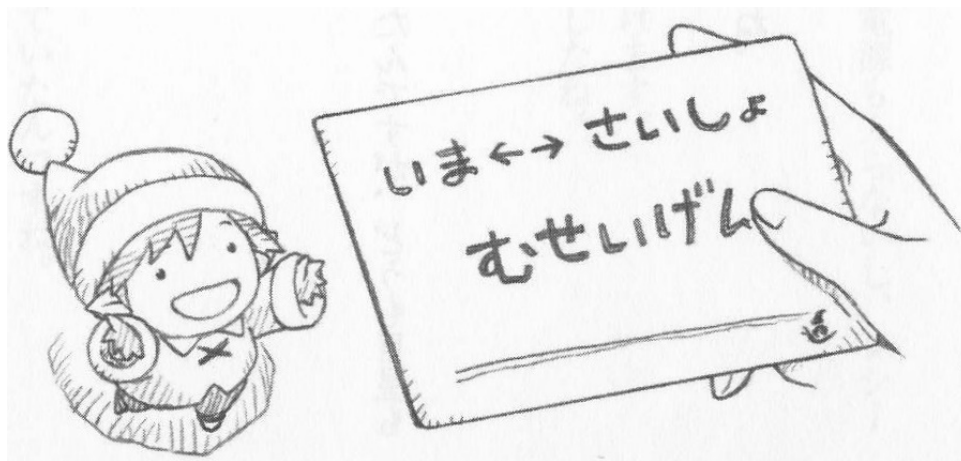 いま←→さいしょ
むせいげん